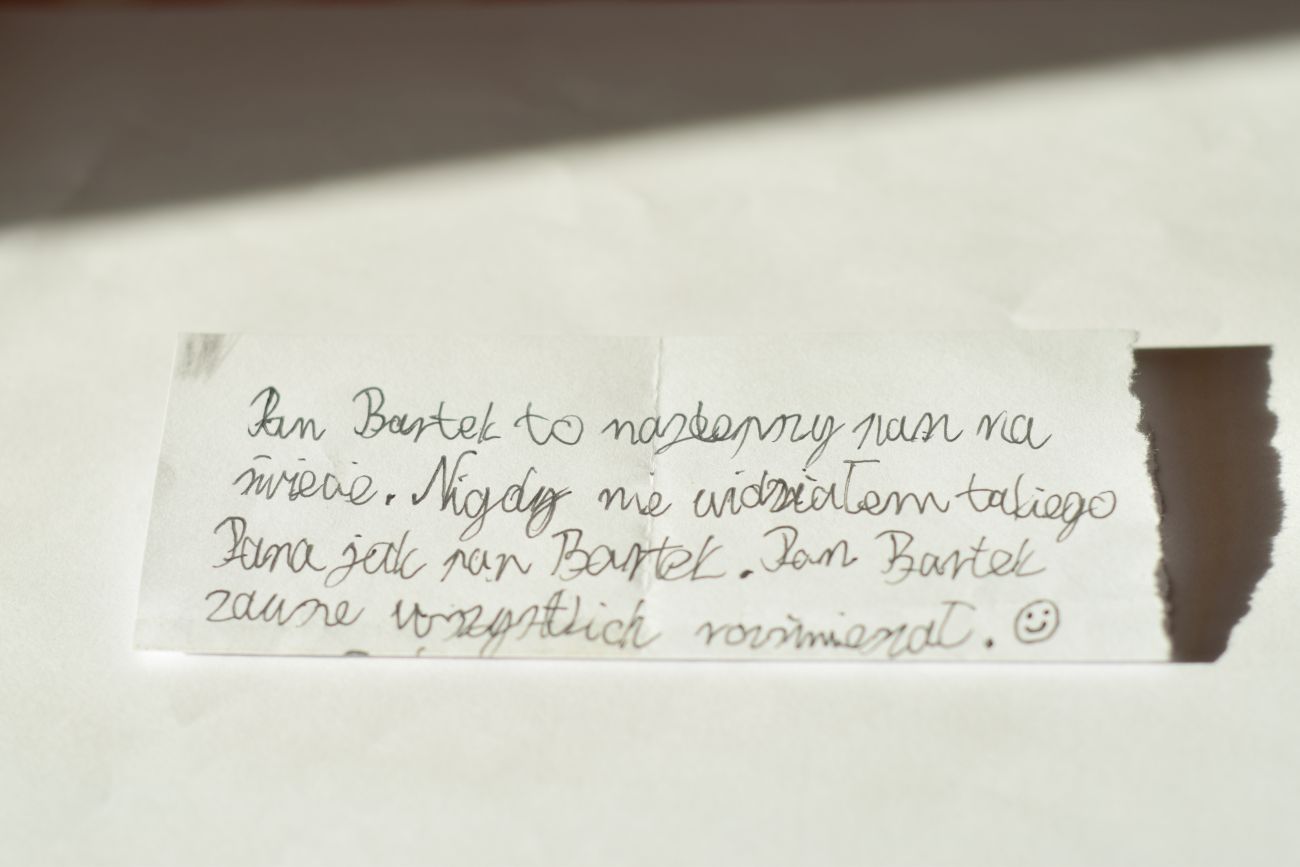 Pan Bartek to najlepszy pan na
świecie. Nigdy nie widziałem takiego
Pana jak pan Bartek. Pan Bartek
zawsze wszystkich rozśmieszał. ☺